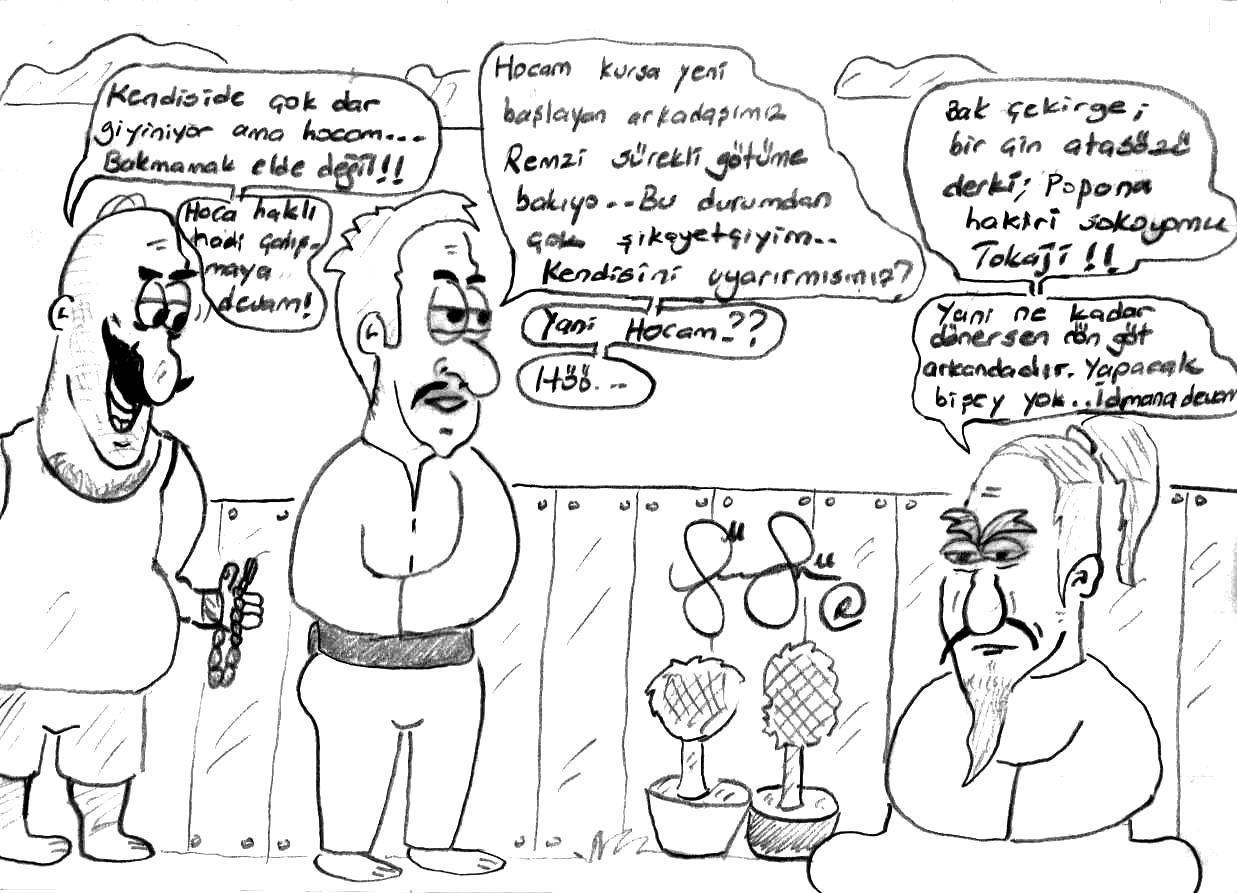 Kendiside çok dar
giyiniyor ama hocam...
Bakmamak elde değil!!
Hoca haklı
hadi çalış-
maya
devam!
Hocam kursa yeni
başlayan arkadaşımız
Remzi sürekli götüme
bakıyo.. Bu durumdan
çok şikayetçiyim..
Kendisini uyarırmısınız?
Yani Hocam??
Höö...
Bak çekirge;
bir çin atasözü
derki; Popona
hakiri sokoyomu
Tokaji!!
Yani ne kadar
dönersen dön göt
arkandadır. Yapacak
bişey yok.. İdmana devam